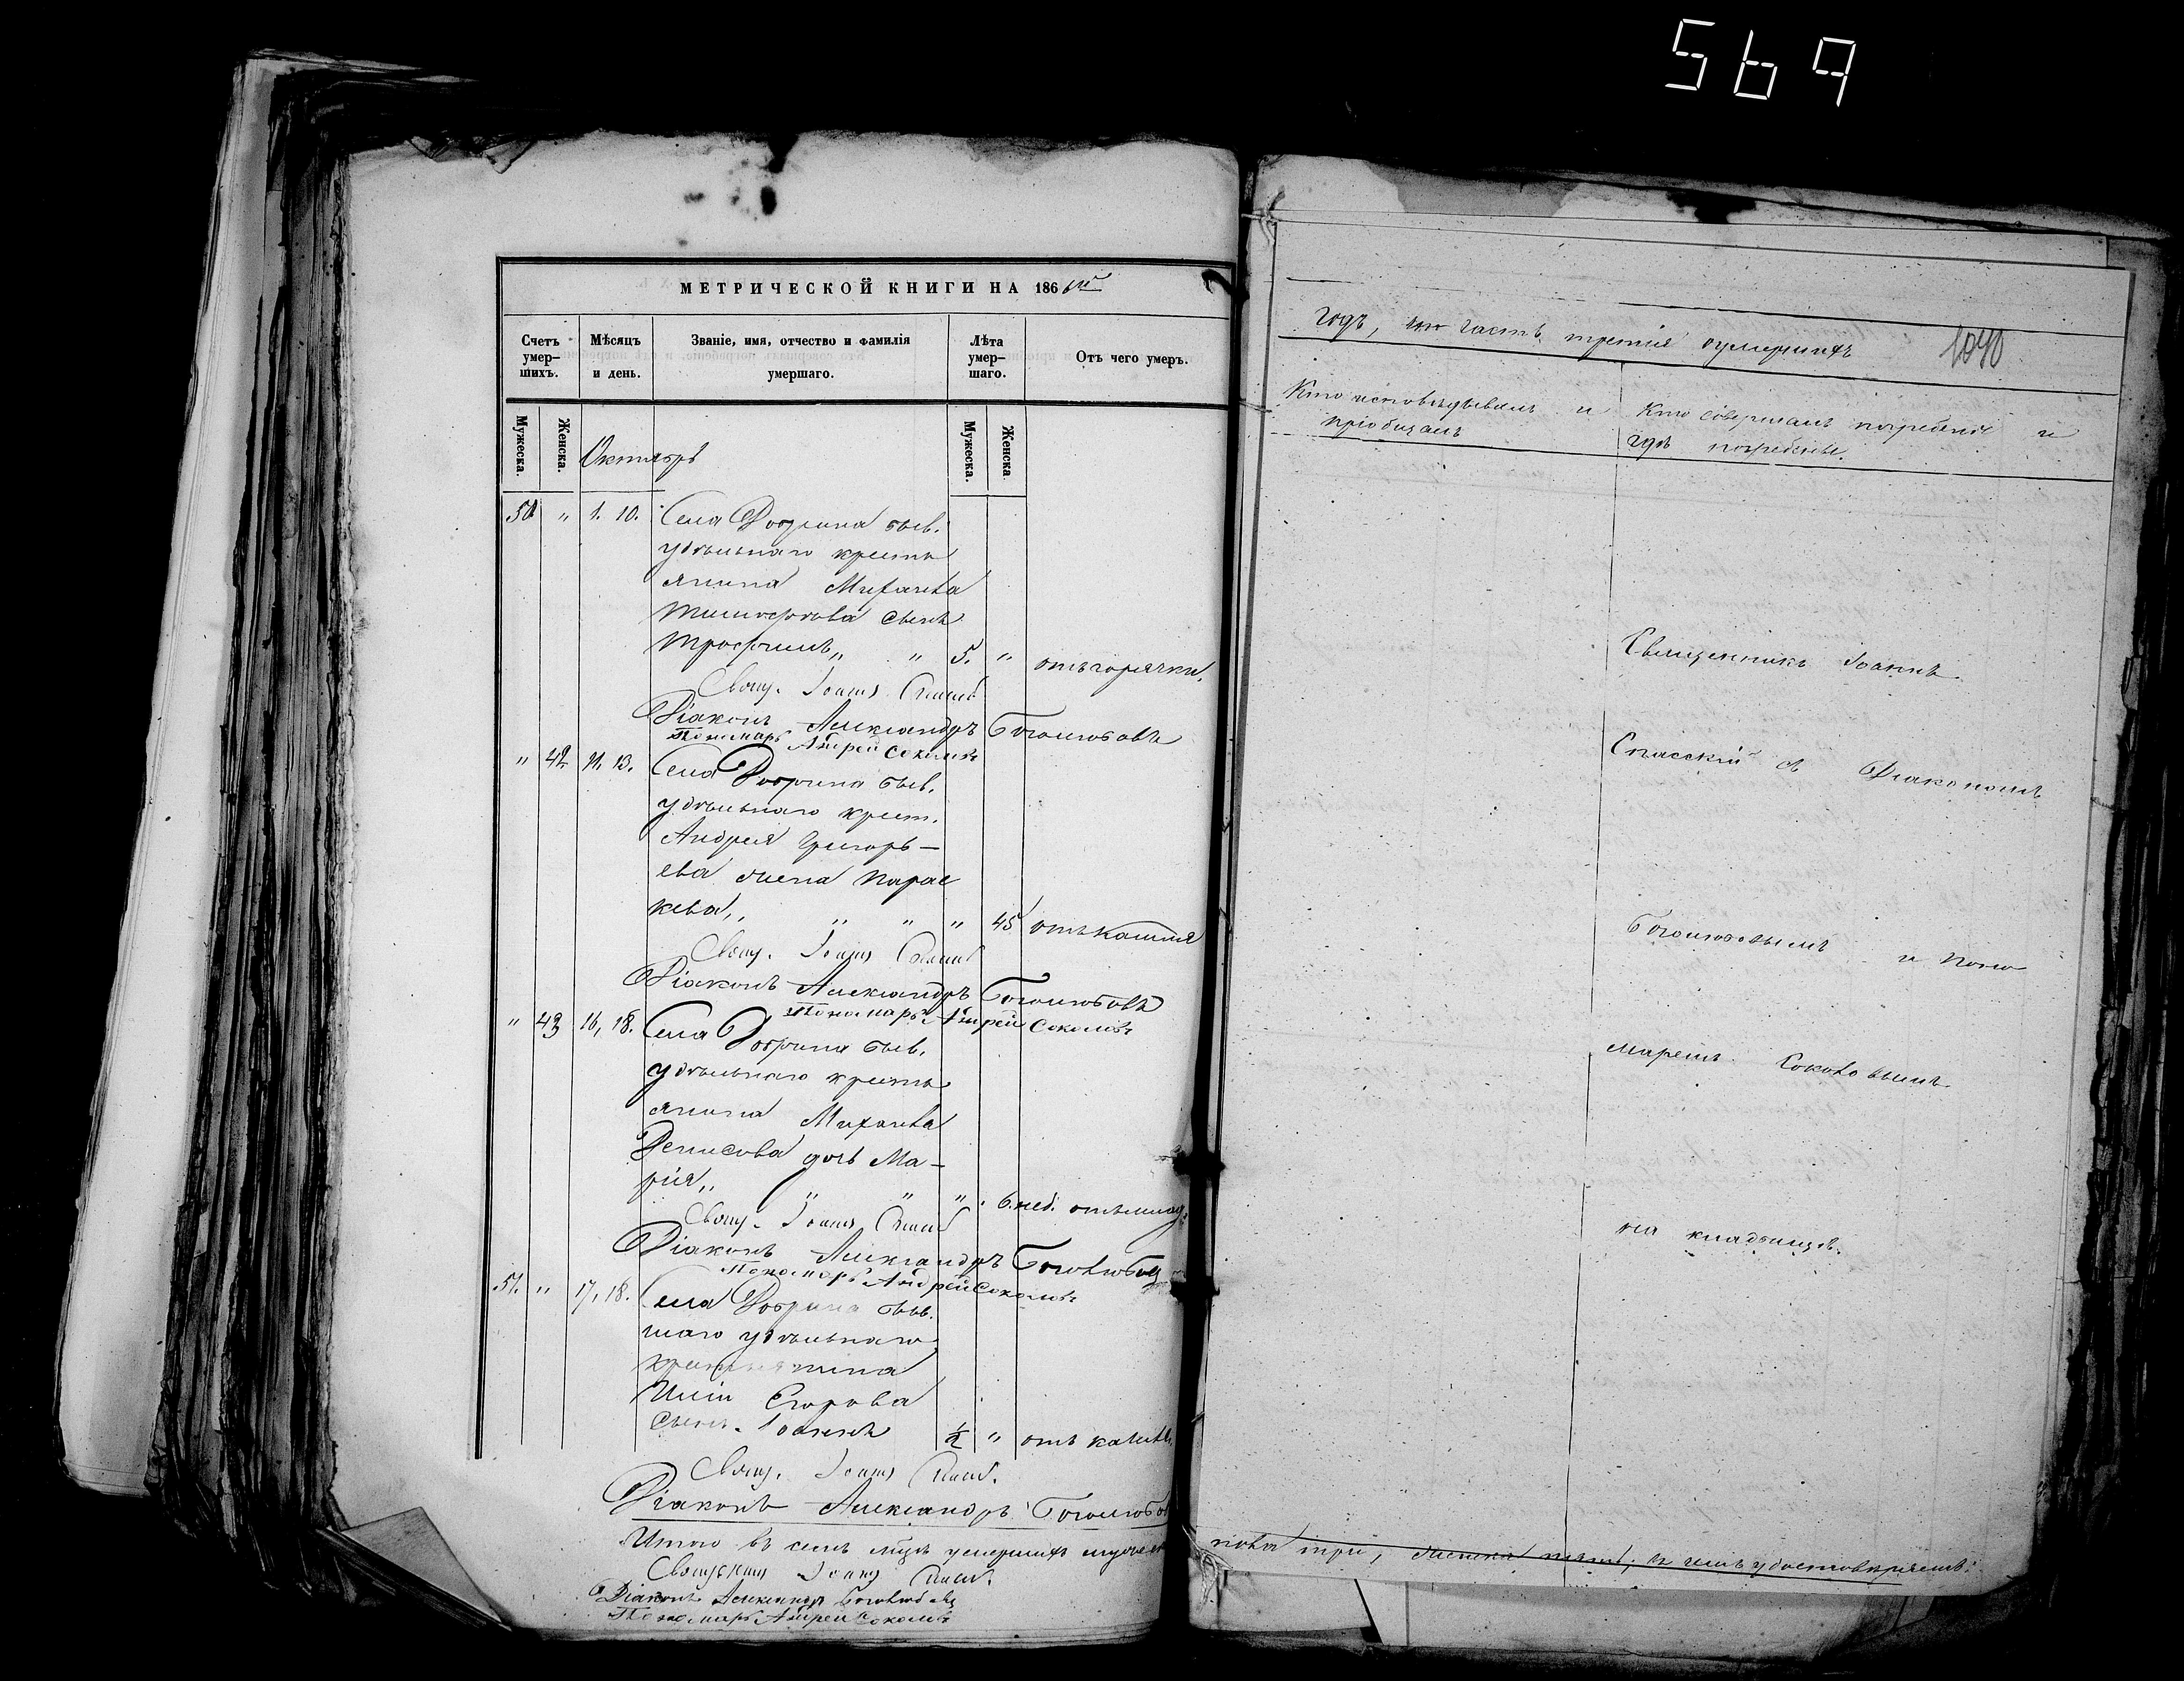 569
МЕТРИЧЕСКОЙ КНИГИ НА 1866й
Счетъ умер-шихъ.
Мѣсяцъ и день.
Званіе, имя, отчество и фамилія умершаго.
Лѣта умер-шаго.
Отъ чего умеръ.
Мужеска.
Женска.
Октябрь
Мужеска.
Женска.
50 " 1. 10. Села Добрина быв.
удѣльнаго кресть
янина Михаила
Тимофѣева сынъ
Трофимъ " " 5. " отъ горячки.
Свящ. Іоаннъ Спасс
Діаконъ Александръ Боголюбовъ
Пономарь Андрей Соколовъ
" 42 11. 13. Села Добрина быв.
удѣльнаго крест.
Андрея Григорь-
ева жена Парас
кева " " " " 45 отъ кашля
Свящ. Іоаннъ Спасс
Діаконъ Александръ Боголюбовъ
Пономарь Андрей Соколовъ
" 43 16, 18. Села Добрина быв.
удѣльнаго кресть
янина Михаила
Денисова дочь Ма-
рія " " " " 6. нед. отъ млад.
Свящ. Іоаннъ Спасс
Діаконъ Александръ Боголюбов
Пономарь Андрей Соколовъ
51. " 17, 18. Села Добрина быв-
шаго удѣльнаго
крестьянина
Иліи Егорова
сынъ Іоаннъ 1/2 " отъ кашля
Свящ. Іоаннъ Спасс.
Діаконъ Александръ Боголюбо
Итого въ семъ мѣс. умершихъ мужес
Священникъ Іоаннъ Спасс.
Діаконъ Александръ Боголюбовъ
Пономарь Андрей Соколовъ
годъ, часть третія о умершихъ
1040
Кто исповѣдывалъ и пріобщалъ
Кто совершалъ погребеніе и гдѣ погребены.
Священникъ Іоаннъ
Спасскій съ Діакономъ
Боголюбовымъ и Поно
маремъ Соколовымъ
на кладбищѣ.
пола три, женска